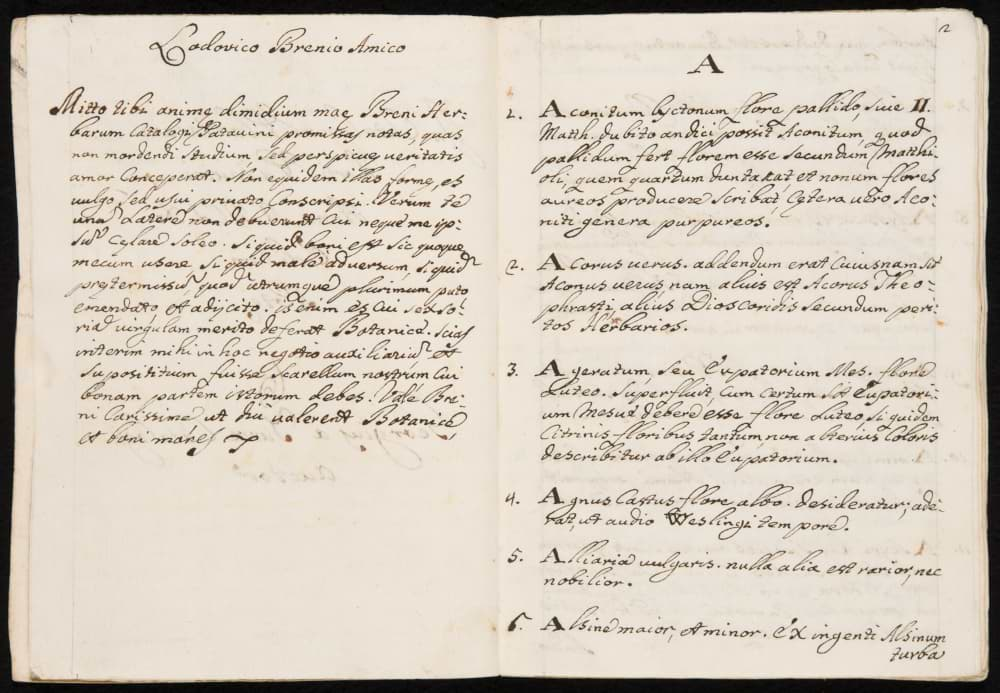 Lodovico Brenio Amico
Mitto tibi animę dimidium meę Breni Her-
barum Catalogi Patavini promissas notas, quas
non mordendi studium sed perspicuę veritatis
amor conceperat. Non equidem illas formę, et
vulgo sed usui privato conscripsi. Verum te
una latere non debuerunt cui neque me ip-
sum cęlare soleo. Si quid boni est sic quoque
mecum utere si quid male adversum, si quid
prętermissum quod utrumque plurimum puto
emendato et adijcito. Is enim es cui
virgulam merito deferat Botanice. Scias
interim mihi in hoc negotio auxiliarium et
supposititium fuisse Scarellam nostrum cui
bonam partem istorum debes. Vale Bre-
ni Carissime ut diu valerent Botanice,
et boni mores
2
A
1. Aconitum lyctonum flore pallido, sive II.
Matth. dubito an dici possit Aconitum, quod
pallidum fert florem esse secundum Matthi-
oli, quem quartum duntaxat et nonum flores
aureos producere scribat cętera vero Aco-
niti genera purpureos.
2. Acorus verus. addendum erat cuiusnam sit
Acorus verus nam alius est Acorus Theo-
phrasti, alius Dioscoridis secundum peri-
tos Herbarios.
3. Ageratum seu Eupatorium Mes. flore
luteo. Superfluit, cum certum sit Eupatori-
um Mesuę debere esse flore luteo si quidem
Citrinis floribus tantum non alterius coloris
describitur ab illo Eupatorium.
4. Agnus Castus flore albo. desideratur; ade-
rat, ut audio Weslingi tempore.
5. Alliaria vulgaris. nulla alia est rarior, nec
nobilior.
6. Alsine maior, et minor. Ex ingenti Alsinum
turba